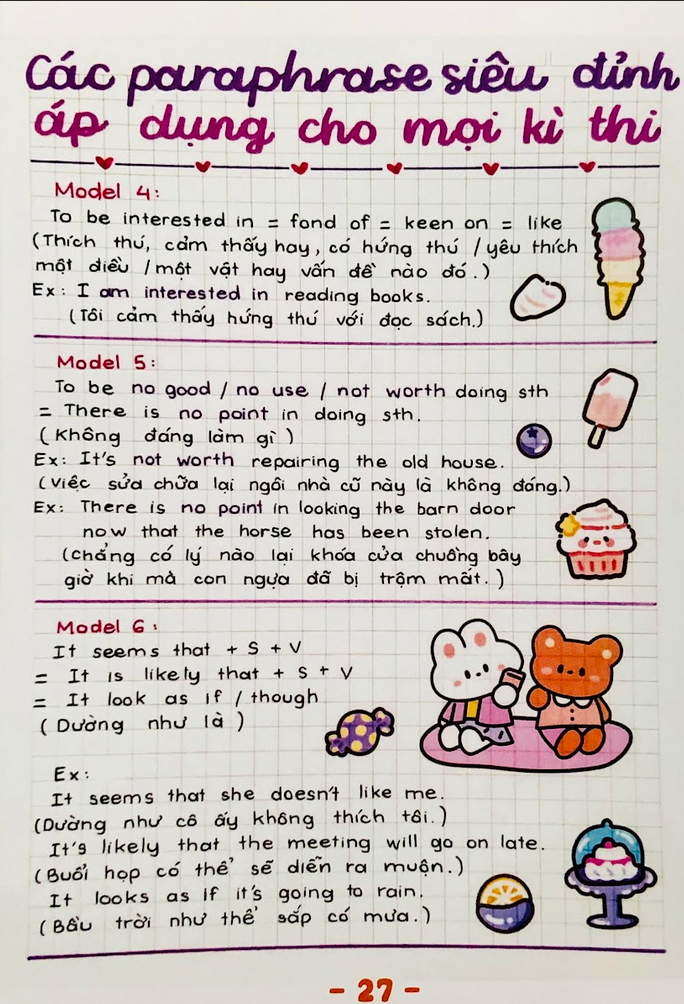 Các paraphrase siêu đỉnh
áp dụng cho mọi kì thi
Model 4:
To be interested in = fond of = keen on = like
(Thích thú, cảm thấy hay, có hứng thú / yêu thích
một điều / một vật hay vấn đề nào đó.)
Ex: I am interested in reading books.
(Tôi cảm thấy hứng thú với đọc sách.)
Model 5:
To be no good / no use / not worth doing sth
= There is no point in doing sth.
(Không đáng làm gì)
Ex: It's not worth repairing the old house.
(Việc sửa chữa lại ngôi nhà cũ này là không đáng.)
Ex: There is no point in looking the barn door
now that the horse has been stolen.
(chẳng có lý nào lại khóa cửa chuồng bây
giờ khi mà con ngựa đã bị trộm mất.)
Model 6:
It seems that + S + V
= It is likely that + S + V
= It look as if / though
(Dường như là)
Ex:
It seems that she doesn't like me.
(Dường như cô ấy không thích tôi.)
It's likely that the meeting will go on late.
(Buổi họp có thể sẽ diễn ra muộn.)
It looks as if it's going to rain.
(Bầu trời như thể sắp có mưa.)
- 27 -